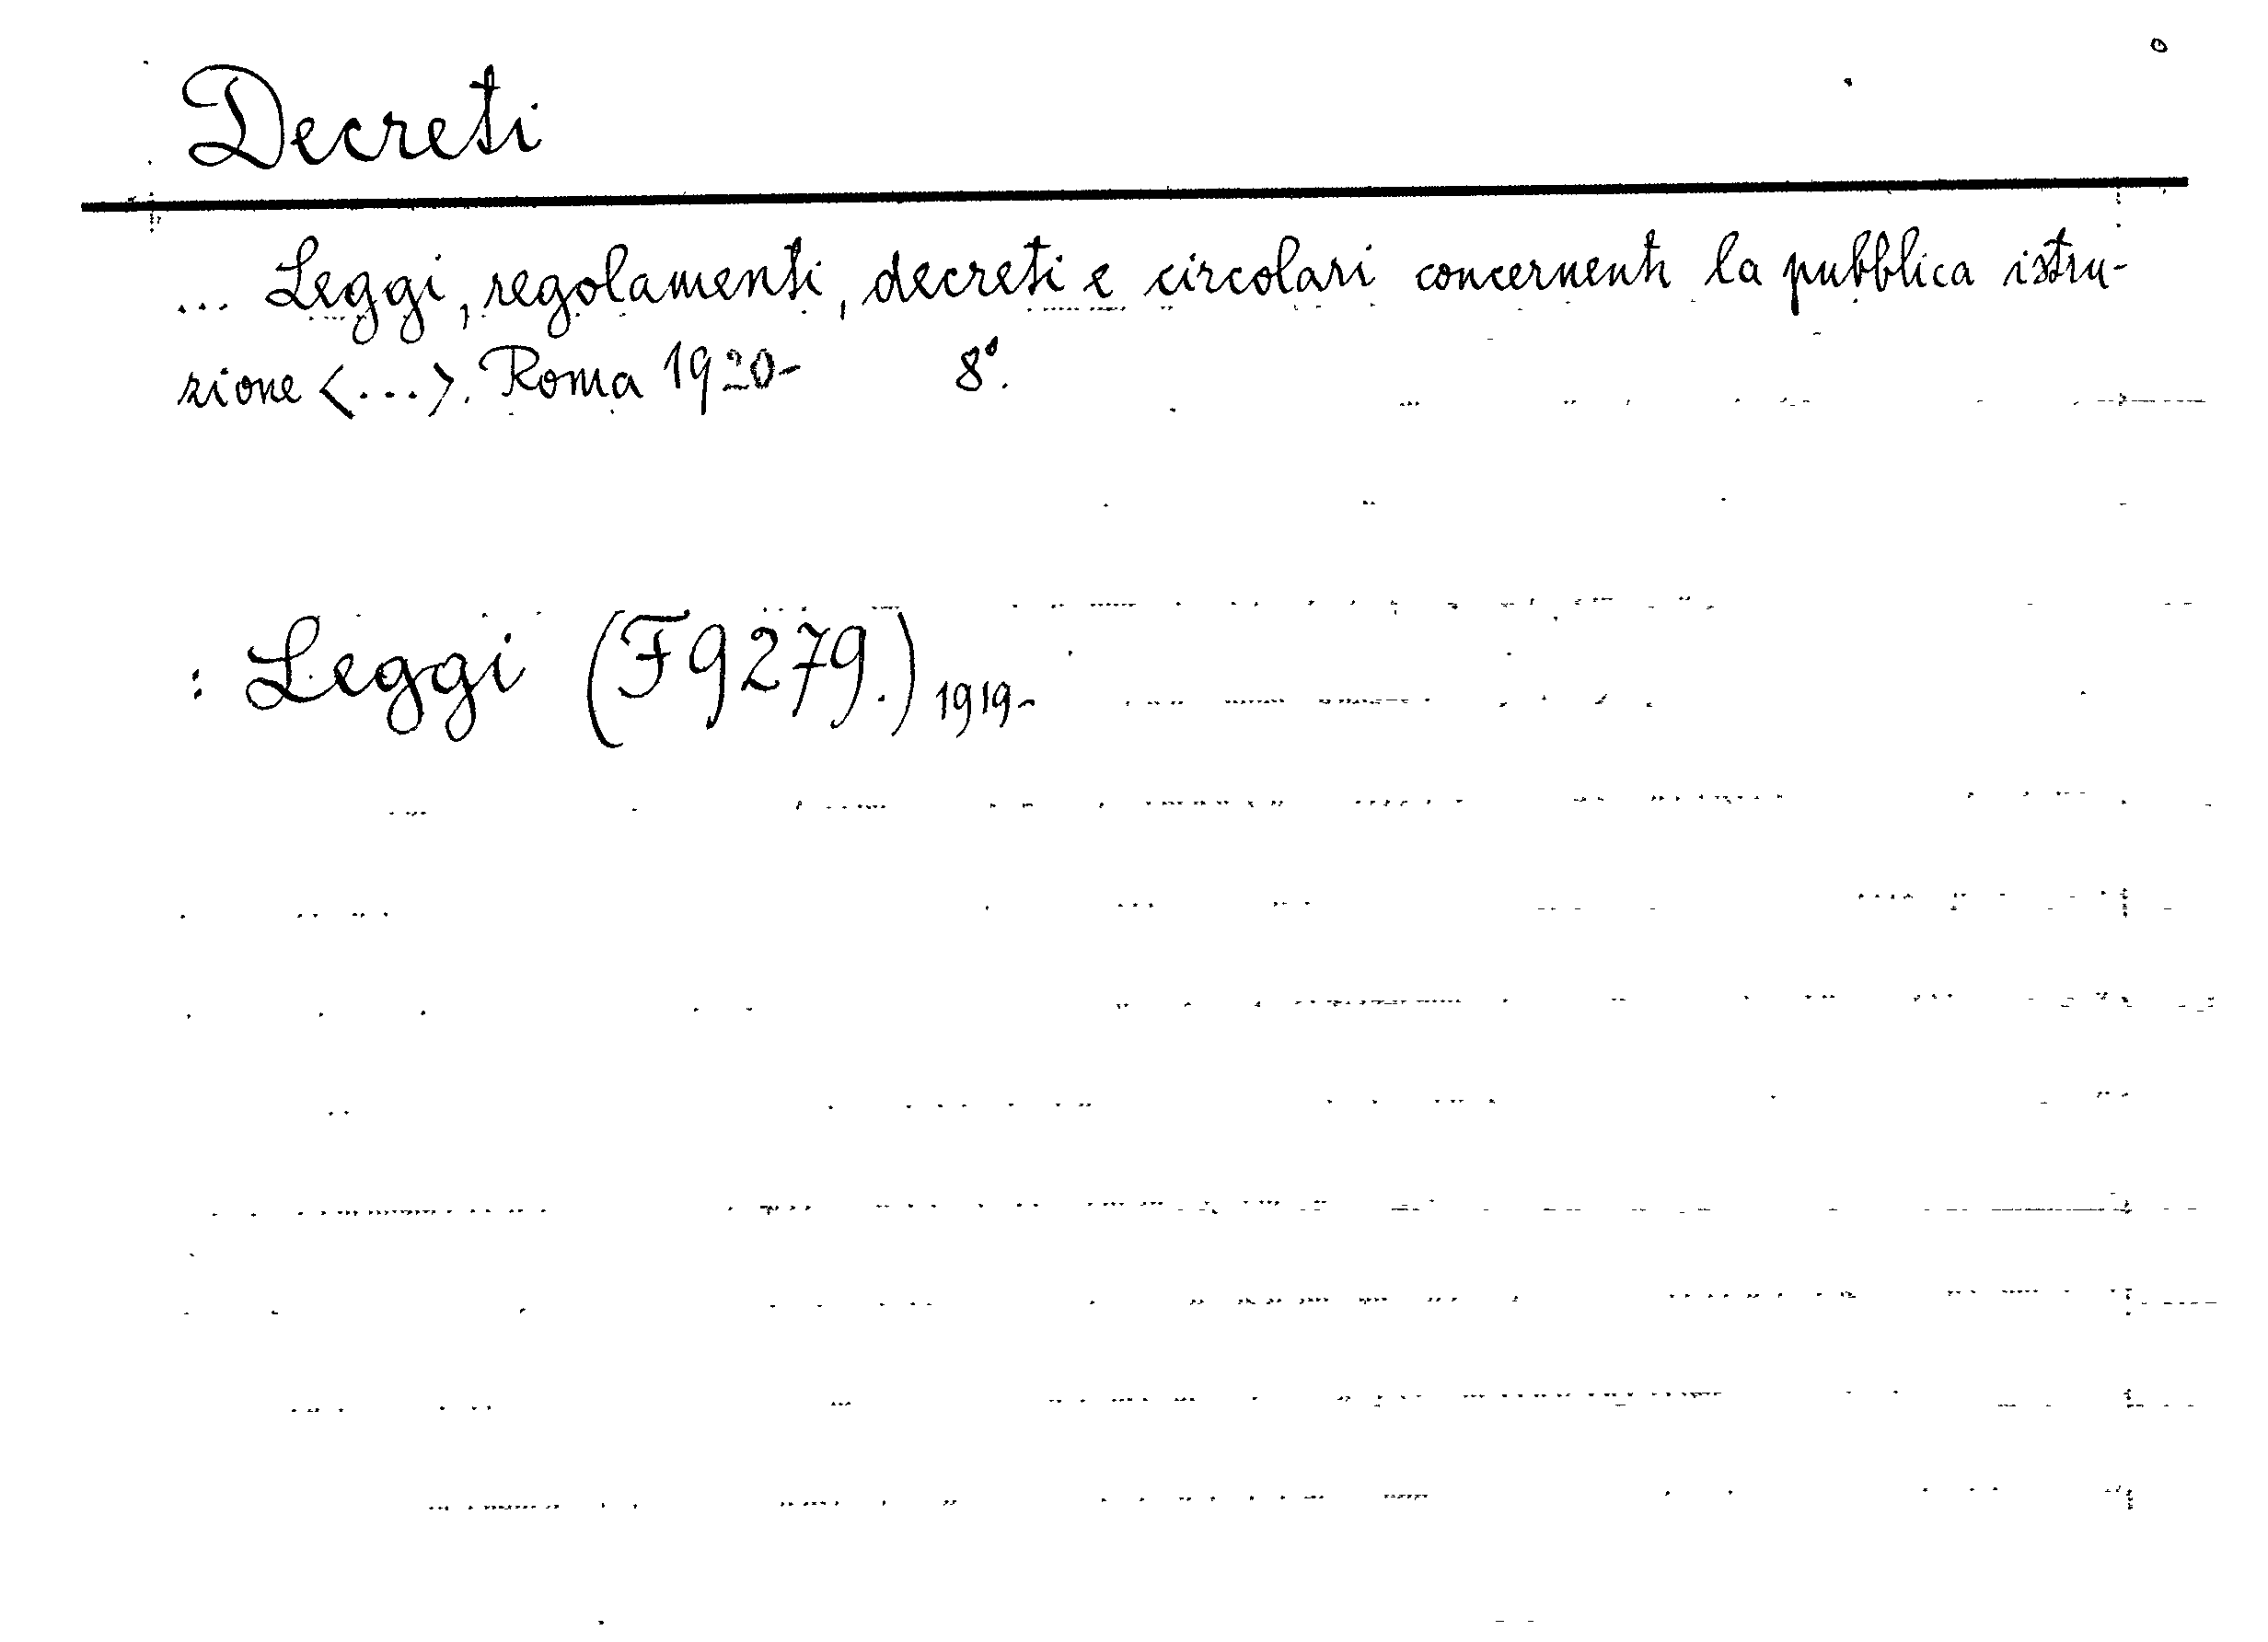 Decreti
... Leggi, regolamenti, decreti e circolari concernenti la pubblica istru-
zione <...>. Roma 1920- 8°.
: Leggi (F9279.) 1919-